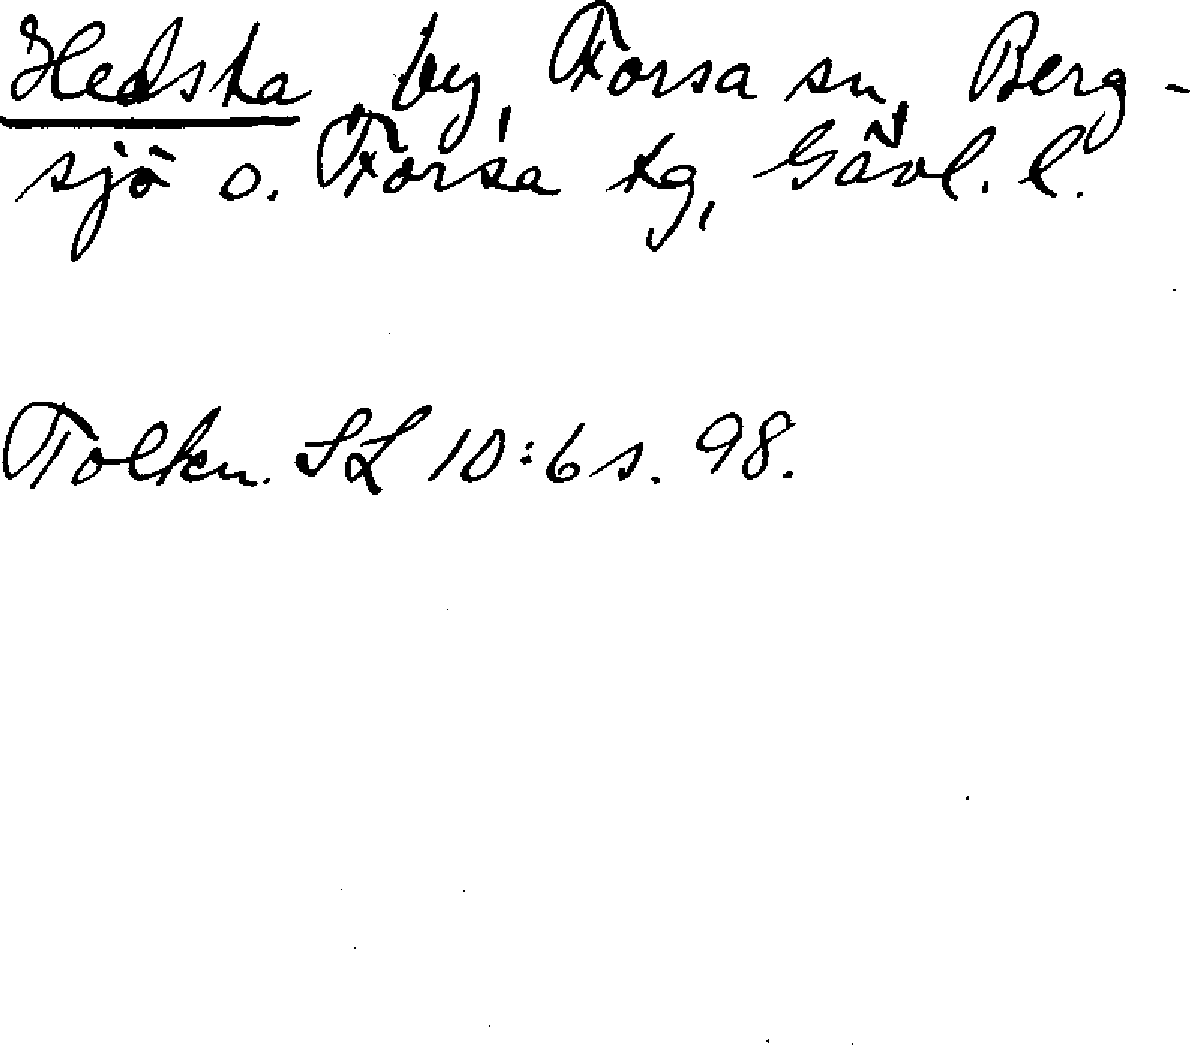 Hedsta, by, Forsa sn, Berg-
sjö o. Forsa tg, Gävl. l.
Tolkn. SL 10:6 s. 98.